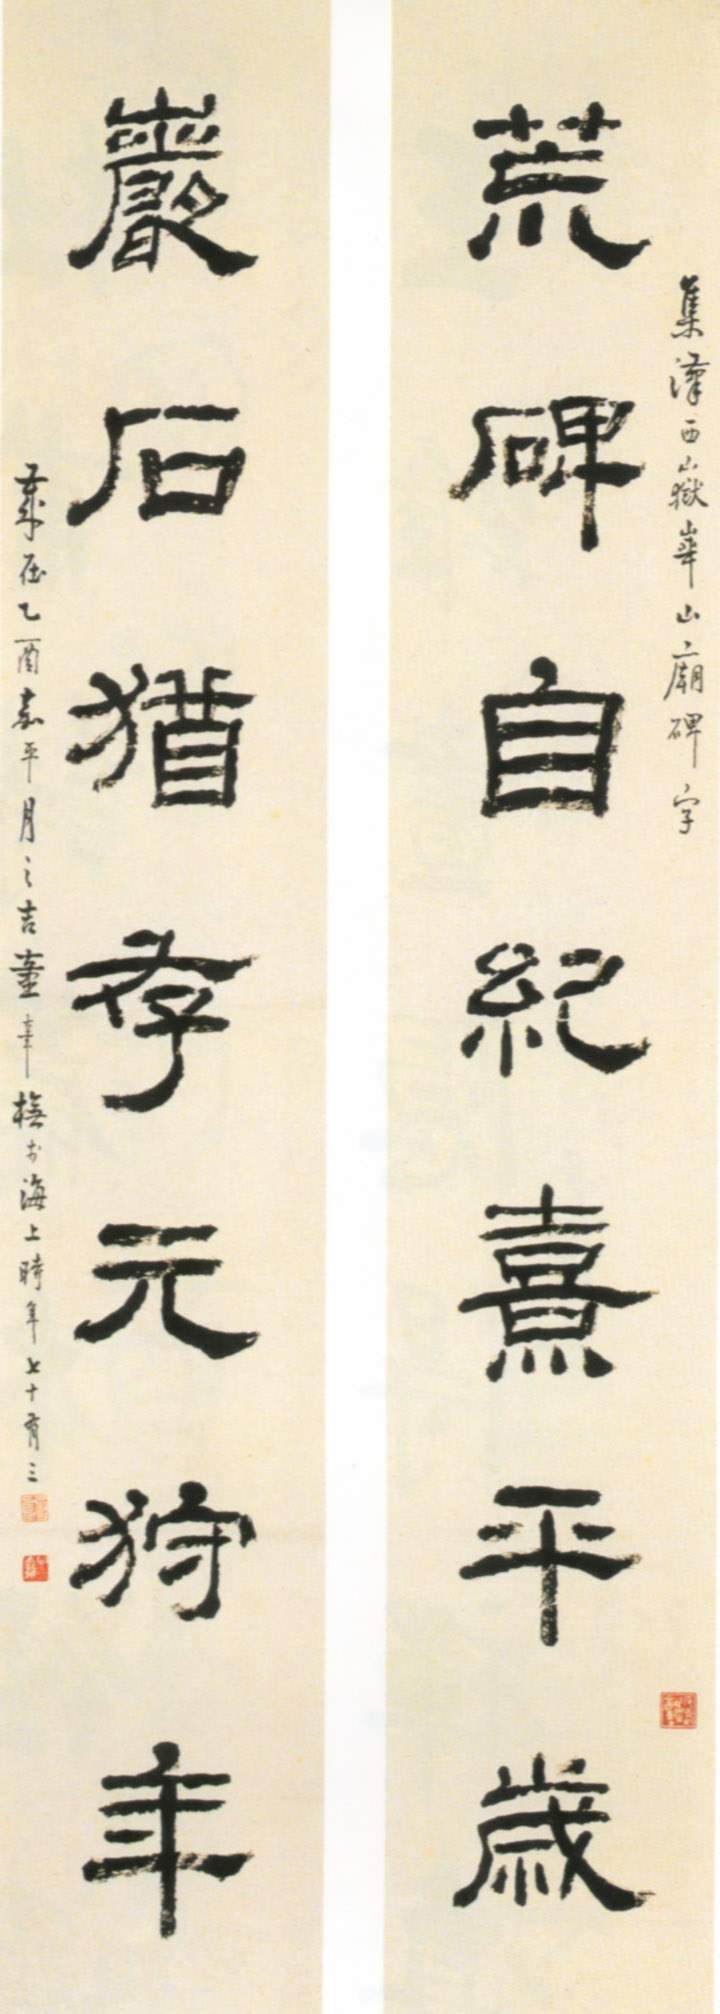 集漢西嶽華山廟碑字
荒碑自紀熹平歲
巖石猶存元狩年
歲在乙酉嘉平月之吉童橅於海上時年七十有三